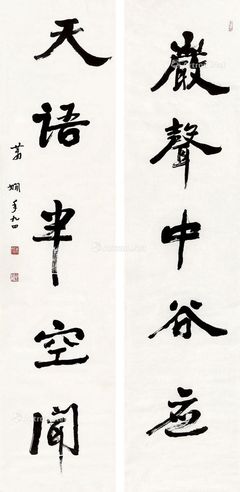 巖聲中谷應
天語半空聞
蕭嫻年九四